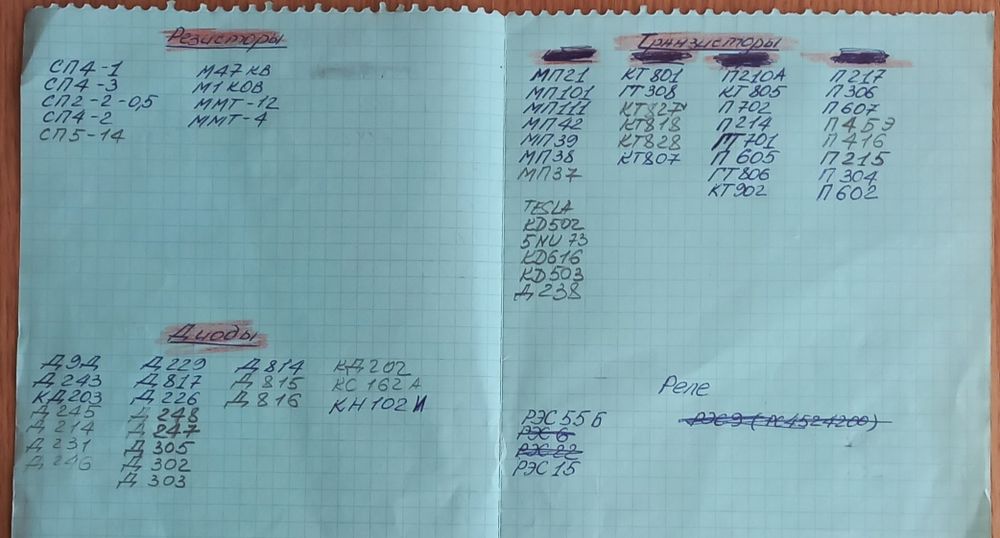 Резисторы
СП4-1
СП4-3
СП2-2-0,5
СП4-2
СП5-14
М47 КВ
М1 КОВ
ММТ-12
ММТ-4
Диоды
Д9Д
Д243
КД203
Д245
Д214
Д231
Д246
Д229
Д817
Д226
Д248
Д247
Д305
Д302
Д303
Д814
Д815
Д816
КД202
КС162А
КН102И
Транзисторы
МП21
МП101
МП111
МП42
МП39
МП38
МП37
TESLA
KD502
5NU73
KD616
KD503
Д238
КТ801
ГТ308
КТ827
КТ818
КТ828
КТ807
П210А
КТ805
П702
П214
ГТ701
П605
ГТ806
КТ902
П217
П306
П607
П416
П215
П304
П602
Реле
РЭС55Б
РЭС6
РЭС22
РЭС15